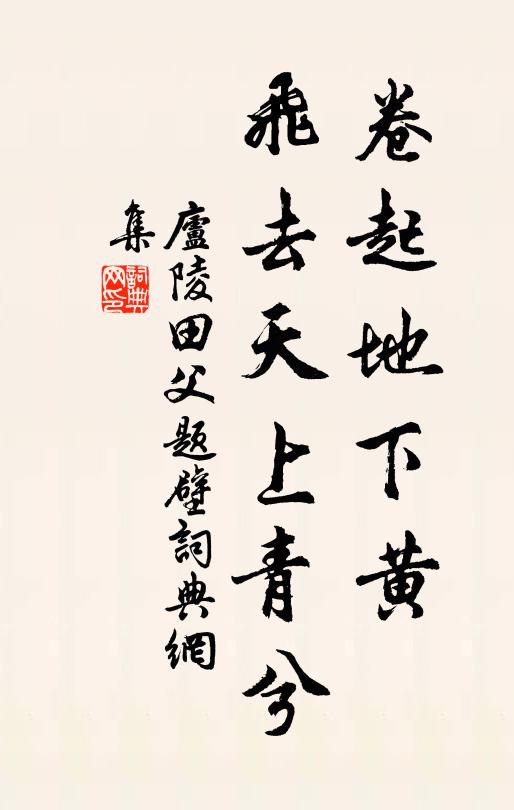 卷起地下黄
飛去天上青兮
廬陵田父题壁詞典網
集
詞典
网印